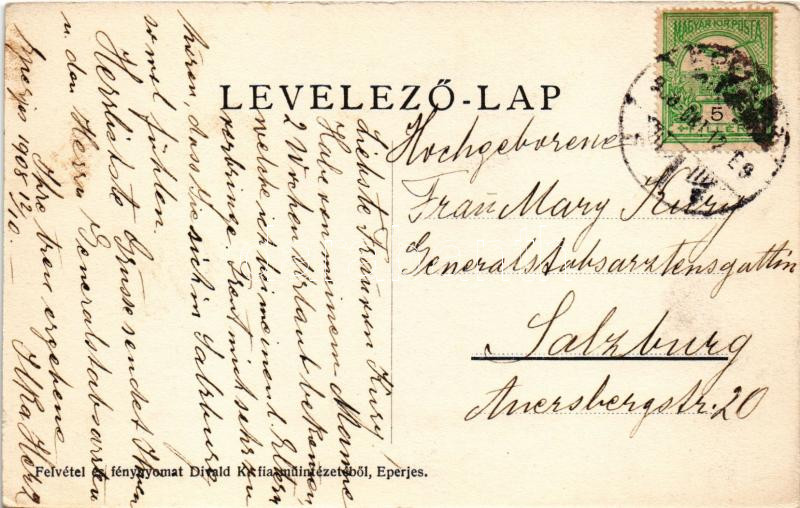 LEVELEZŐ-LAP
MAGYAR KIR. POSTA
5
Hochgeborene
Frau Mary Kury
Generalstabsarztensgattin
Salzburg
Auersbergstr. 20
Liebste Frau von Kury!
Habe von meinem Manne
2 Wochen Urlaub bekommen,
welche ich bei meinen l. Eltern
verbringe. Freut mich sehr zu
hören, dass Sie sich in Salzburg
so wol fühlen.
Herzlichste Grüsse sendet Ihnen
u. den Herrn Generalstabsarzten
Ihre treu ergebene
Ilka Herz
Eperjes 1908 12/10. –
Felvétel és fénynyomat Divald K. fia műintézetéből, Eperjes.